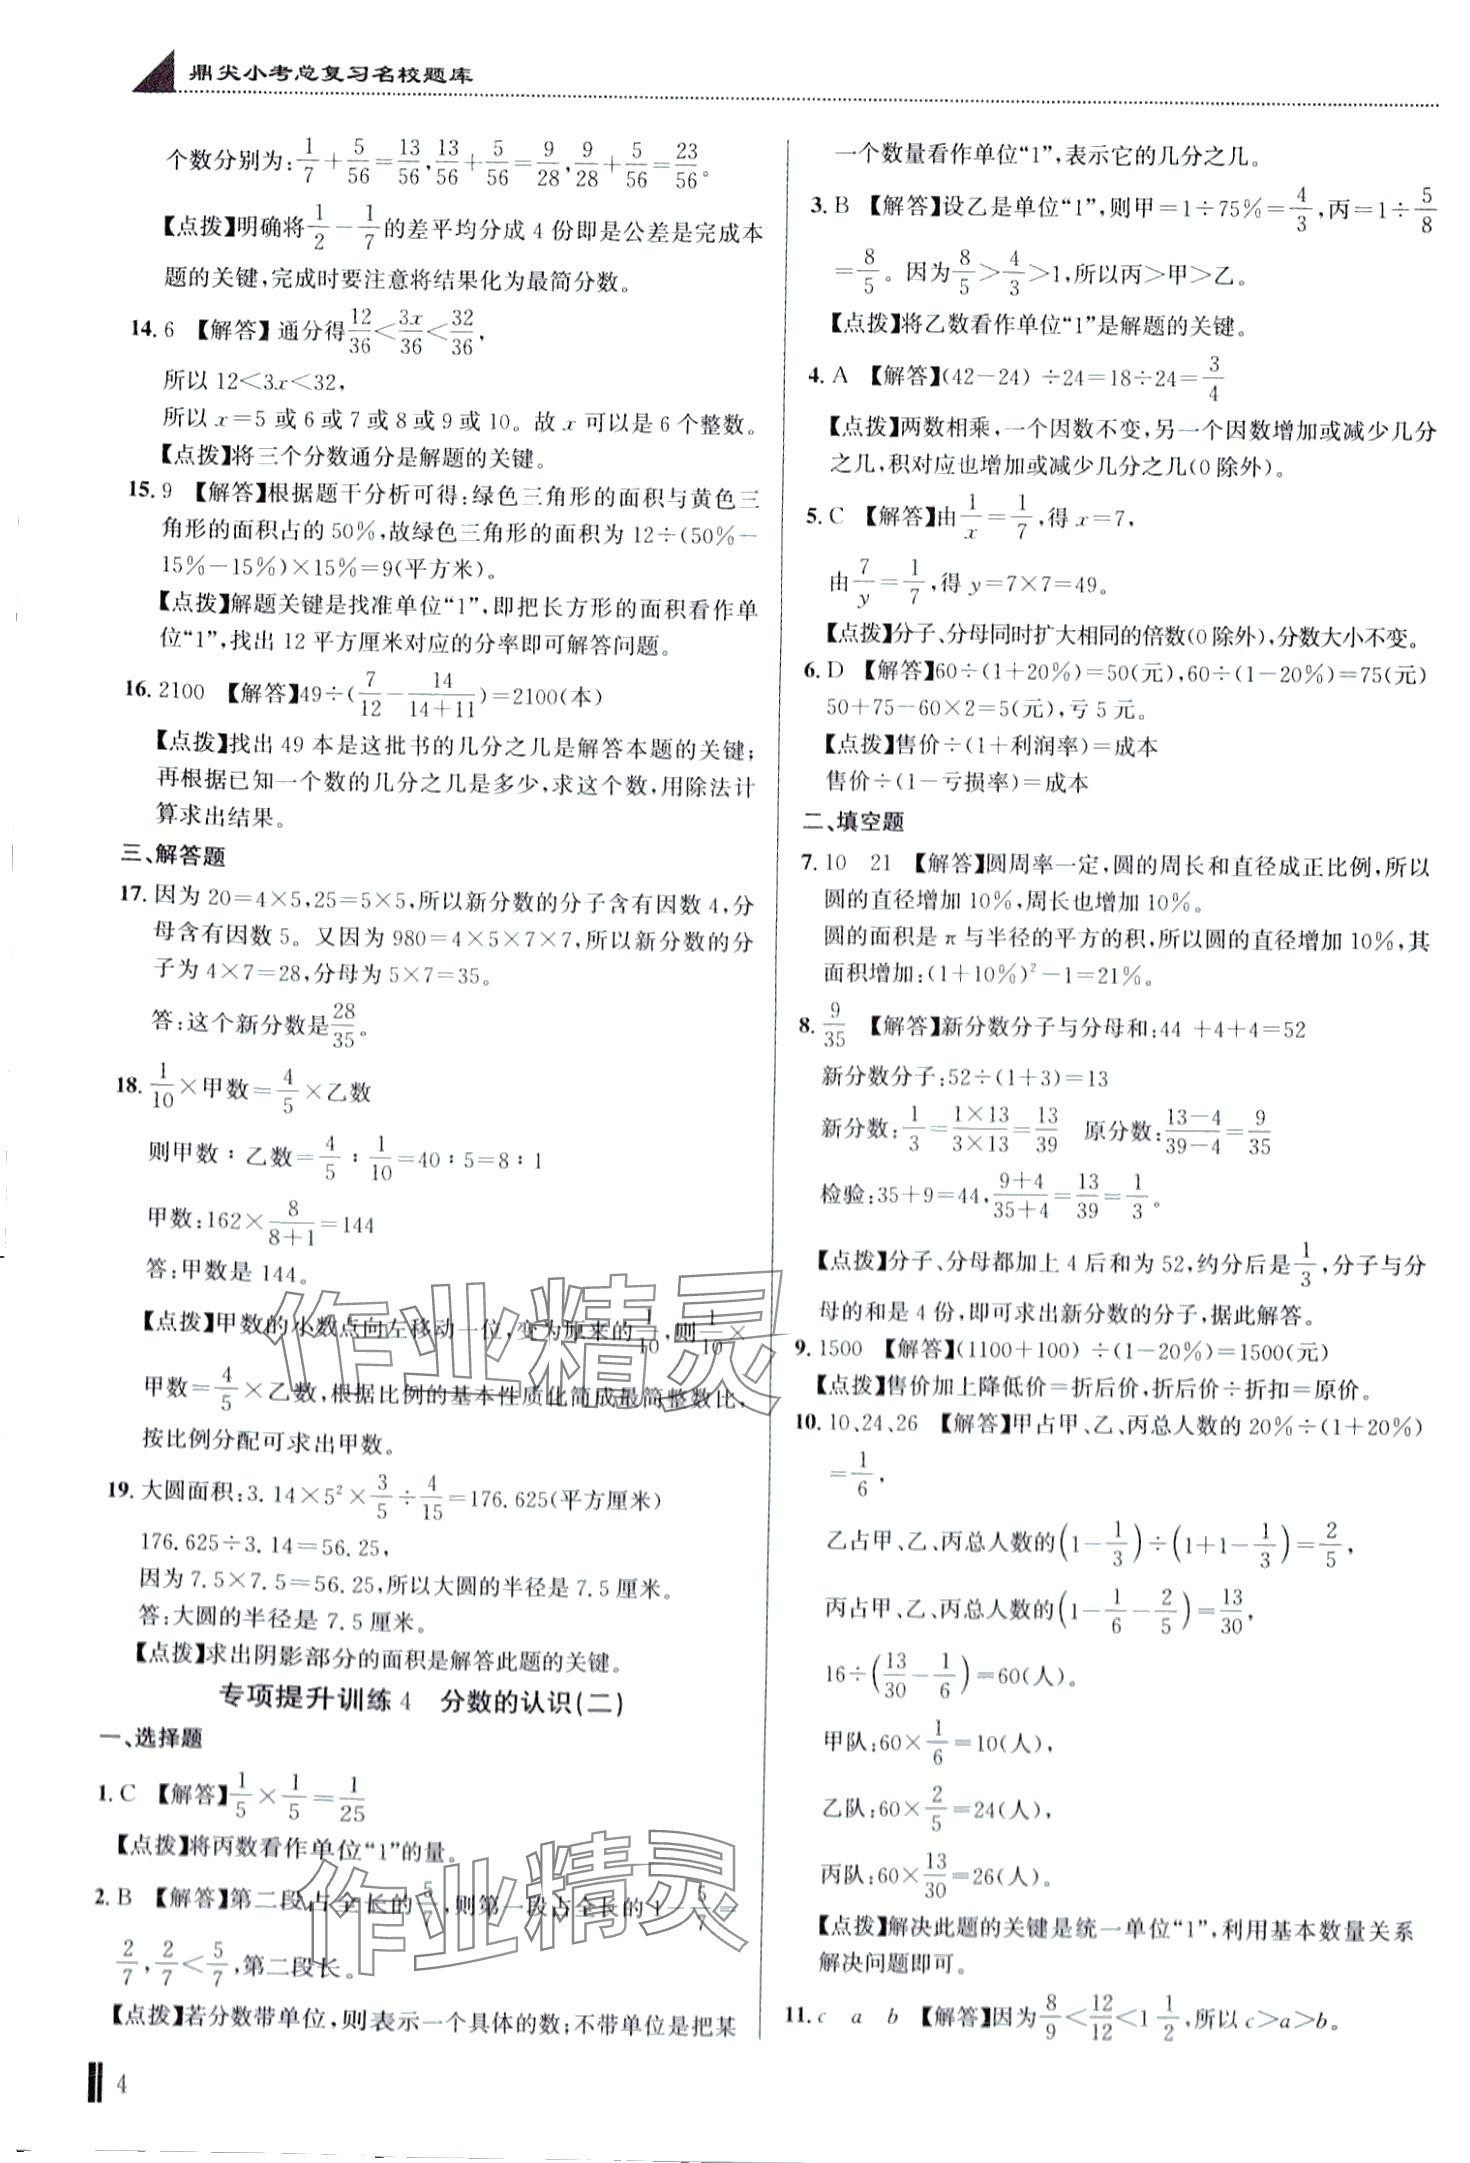 鼎尖小考总复习名校题库
个数分别为:1/7+5/56=13/56,13/56+5/56=9/28,9/28+5/56=23/56。
【点拨】明确将1/2-1/7的差平均分成4份即是公差是完成本
题的关键,完成时要注意将结果化为最简分数。
14. 6 【解答】通分得12/36<3x/36<32/36,
所以12<3x<32,
所以x=5或6或7或8或9或10。故x可以是6个整数。
【点拨】将三个分数通分是解题的关键。
15. 9 【解答】根据题干分析可得:绿色三角形的面积与黄色三
角形的面积占的50%,故绿色三角形的面积为12÷(50%-
15%-15%)×15%=9(平方米)。
【点拨】解题关键是找准单位“1”,即把长方形的面积看作单
位“1”,找出12平方厘米对应的分率即可解答问题。
16. 2100 【解答】49÷(7/12-14/(14+11))=2100(本)
【点拨】找出49本是这批书的几分之几是解答本题的关键;
再根据已知一个数的几分之几是多少,求这个数,用除法计
算求出结果。
三、解答题
17. 因为20=4×5,25=5×5,所以新分数的分子含有因数4,分
母含有因数5。又因为980=4×5×7×7,所以新分数的分
子为4×7=28,分母为5×7=35。
答:这个新分数是28/35。
18. 1/10×甲数=4/5×乙数
则甲数:乙数=4/5:1/10=40:5=8:1
甲数:162×8/(8+1)=144
答:甲数是144。
【点拨】甲数的小数点向左移动一位,变为原来的1/10,则1/10×
甲数=4/5×乙数,根据比例的基本性质化简成最简整数比,
按比例分配可求出甲数。
19. 大圆面积:3.14×5²×3/5÷4/15=176.625(平方厘米)
176.625÷3.14=56.25,
因为7.5×7.5=56.25,所以大圆的半径是7.5厘米。
答:大圆的半径是7.5厘米。
【点拨】求出阴影部分的面积是解答此题的关键。
专项提升训练4 分数的认识(二)
一、选择题
1. C 【解答】1/5×1/5=1/25
【点拨】将丙数看作单位“1”的量。
2. B 【解答】第二段占全长的5/7,则第一段占全长的1-5/7=
2/7,2/7<5/7,第二段长。
【点拨】若分数带单位,则表示一个具体的数;不带单位是把某
4
一个数量看作单位“1”,表示它的几分之几。
3. B 【解答】设乙是单位“1”,则甲=1÷75%=4/3,丙=1÷5/8
=8/5。因为8/5>4/3>1,所以丙>甲>乙。
【点拨】将乙数看作单位“1”是解题的关键。
4. A 【解答】(42-24)÷24=18÷24=3/4
【点拨】两数相乘,一个因数不变,另一个因数增加或减少几分
之几,积对应也增加或减少几分之几(0除外)。
5. C 【解答】由1/x=1/7,得x=7,
由7/y=1/7,得y=7×7=49。
【点拨】分子、分母同时扩大相同的倍数(0除外),分数大小不变。
6. D 【解答】60÷(1+20%)=50(元),60÷(1-20%)=75(元)
50+75-60×2=5(元),亏5元。
【点拨】售价÷(1+利润率)=成本
售价÷(1-亏损率)=成本
二、填空题
7. 10 21 【解答】圆周率一定,圆的周长和直径成正比例,所以
圆的直径增加10%,周长也增加10%。
圆的面积是π与半径的平方的积,所以圆的直径增加10%,其
面积增加:(1+10%)²-1=21%。
8. 9/35 【解答】新分数分子与分母和:44+4+4=52
新分数分子:52÷(1+3)=13
新分数:1/3=(1×13)/(3×13)=13/39 原分数:(13-4)/(39-4)=9/35
检验:35+9=44,(9+4)/(35+4)=13/39=1/3。
【点拨】分子、分母都加上4后和为52,约分后是1/3,分子与分
母的和是4份,即可求出新分数的分子,据此解答。
9. 1500 【解答】(1100+100)÷(1-20%)=1500(元)
【点拨】售价加上降低价=折后价,折后价÷折扣=原价。
10. 10、24、26 【解答】甲占甲、乙、丙总人数的20%÷(1+20%)
=1/6,
乙占甲、乙、丙总人数的(1-1/3)÷(1+1-1/3)=2/5,
丙占甲、乙、丙总人数的(1-1/6-2/5)=13/30,
16÷(13/30-1/6)=60(人),
甲队:60×1/6=10(人),
乙队:60×2/5=24(人),
丙队:60×13/30=26(人)。
【点拨】解决此题的关键是统一单位“1”,利用基本数量关系
解决问题即可。
11. c a b 【解答】因为8/9<12/12<1 1/2,所以c>a>b。
作业精灵
作业精灵